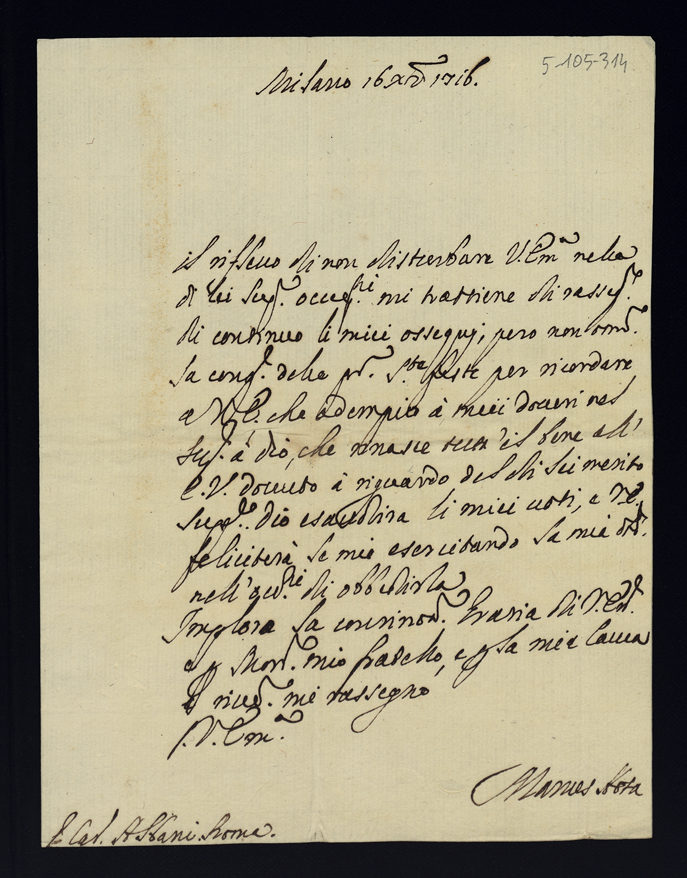 Milano 16 Xre 1716.
5-105-314
il riflesso di non disturbare V. Emª nelle
di lei sup. occup.ni mi trattiene di rasseg.
di continuo li miei ossequj, pero non om.
la cong. delle pr. S.te feste per ricordare
a V. E. che adempio à miei doveri nel
sup. à dio, che rinasce tutt' il bene all'
E. V. dovuto à riguardo del di lei merito
dio esaudira li miei voti, e V. E.
feliciterà me esercitando la mia
nell' di obbedirla
Implora la continov. grazia di V. Em.
e p Mons. mio fratello, e p la mia
mi rassegno
V. Emª
S. Card. Albani Roma.